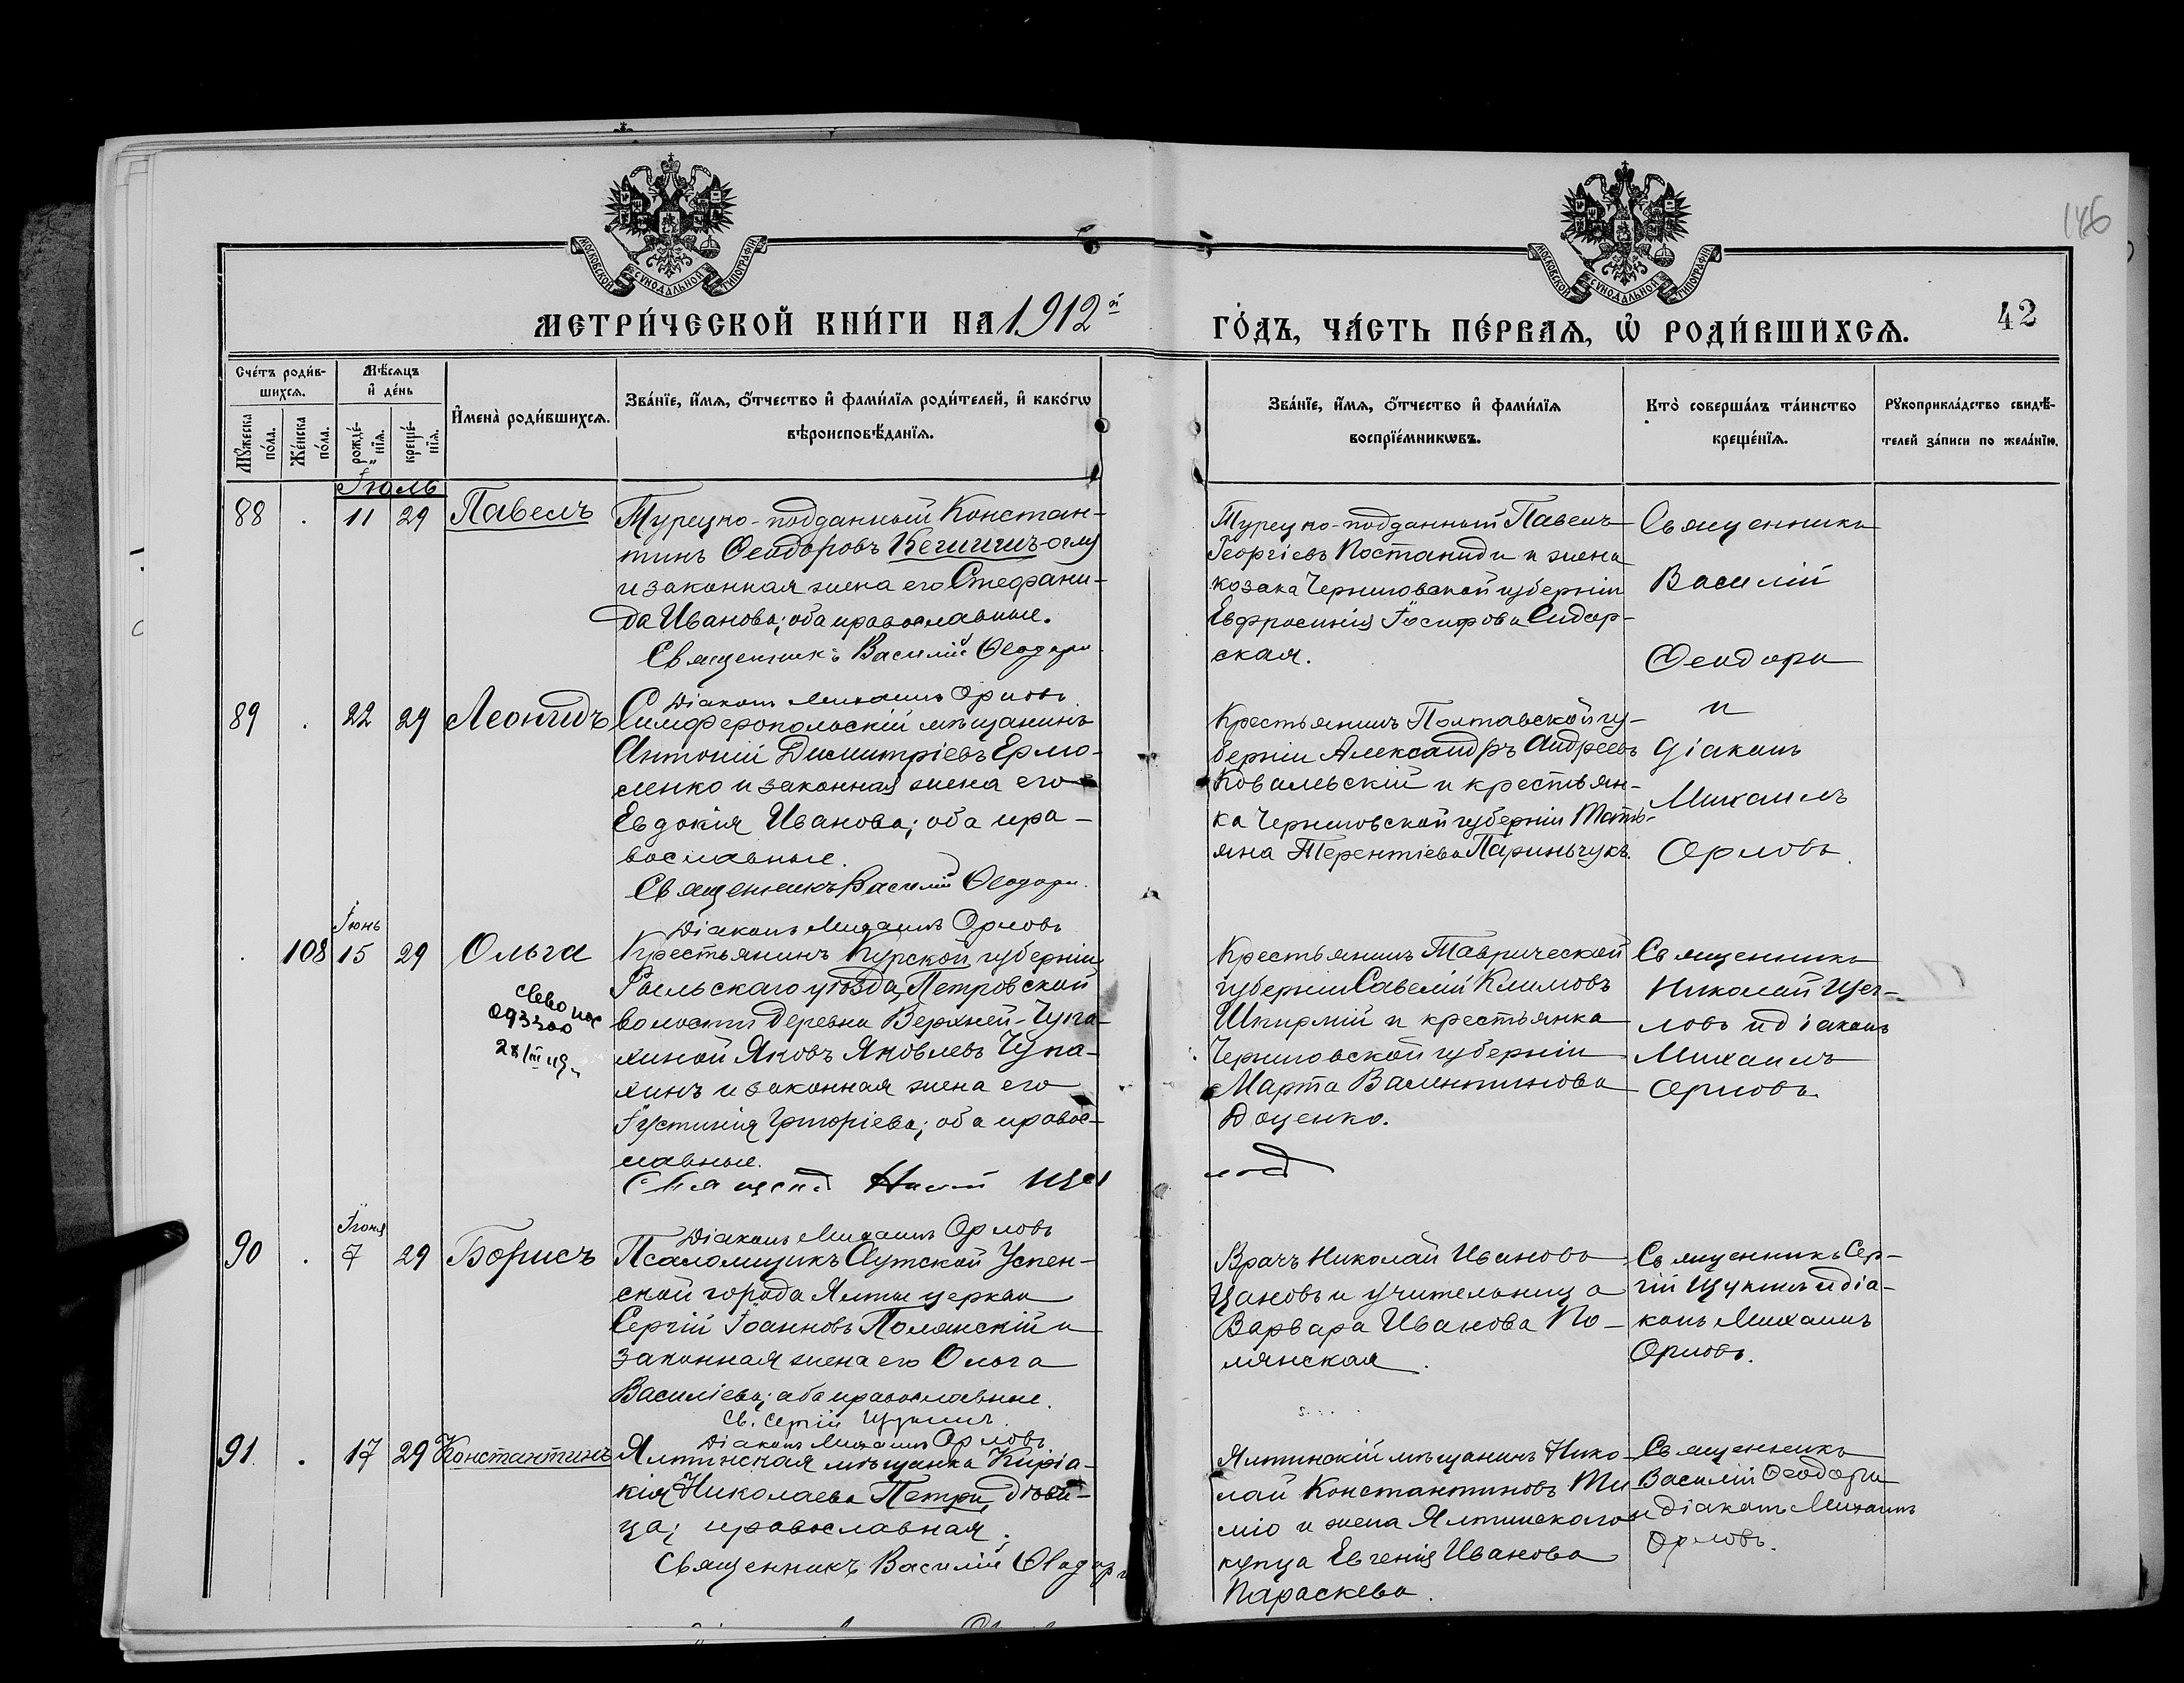 146
МОСКОВСКОЙ СѴНОДАЛЬНОЙ ТИПОГРАФІИ
МОСКОВСКОЙ СѴНОДАЛЬНОЙ ТИПОГРАФІИ
МЕТРИ́ЧЕСКОЙ КНИ́ГИ НА 1912й
ГО́ДЪ, ЧА́СТЬ ПЕ́РВАѦ, Ѡ҆ РОДИ́ВШИХСѦ.
42
Сче́тъ роди́в-
шихсѧ.
Мꙋжеска по́ла.
Же́нска по́ла.
Мѣ́сѧцъ
и҆ де́нь
рожде́-
нїѧ.
креще́-
нїѧ.
И҆мена̀ роди́вшихсѧ.
Зва́нїе, и҆́мѧ, ѻ҆́тчество и҆ фами́лїѧ роди́телей, и҆ како́гѡ
вѣроисповѣ́данїѧ.
Зва́нїе, и҆́мѧ, ѻ҆́тчество и҆ фами́лїѧ
воспрїе́мникѡвъ.
Кто̀ соверша́лъ та́инство
креще́нїѧ.
Рꙋкоприкла́дство свидѣ́-
телей за́писи по жела́нїю.
Іюль
88 . 11 29 Павелъ
Турецко-подданный Констан-
тинъ Ѳеодоровъ Кечигчи-оглу
и законная жена его Стефани-
да Иванова; оба православные.
Священникъ Василій Ѳеодори
Діаконъ Михаилъ Орловъ
Турецко-подданный Павелъ
Георгіевъ Костаниди и жена
козака Черниговской губерніи
Евфросинія Іосифова Сидор-
ская.
Священникъ
Василій
Ѳеодори
и
діаконъ
Михаилъ
Орловъ.
89 . 22 29 Леонидъ
Симферопольскій мѣщанинъ
Антоній Димитріевъ Ермо-
ленко и законная жена его
Евдокія Иванова; оба пра-
вославные.
Священникъ Василій Ѳеодори.
Діаконъ Михаилъ Орловъ
Крестьянинъ Полтавской гу-
берніи Александръ Андреевъ
Ковалевскій и крестьян-
ка Черниговской губерніи Тать-
яна Терентіева Париньчукъ.
Іюнь
. 108 15 29 Ольга
28/III
Крестьянинъ Курской губерніи
Рыльскаго уѣзда, Петровской
волости деревни Верхней-Чупа-
хиной Яковъ Яковлевъ Чупа-
хинъ и законная жена его
Іустинія Григоріева; оба правос-
лавные.
Діаконъ Михаилъ Орловъ
Крестьянинъ Таврической
губерніи Савелій Климовъ
Шкирмій и крестьянка
Черниговской губерніи
Марта Валентинова
Доценко.
Священникъ
Николай Щег-
ловъ и діаконъ
Михаилъ
Орловъ.
Іюня
90 . 7 29 Борисъ
Псаломщикъ Аутской Успен-
ской города Ялты церкви
Сергій Іоанновъ Полянскій и
законная жена его Ольга
Василіева; оба православные.
Св. Сергій Щукинъ.
Діаконъ Михаилъ Орловъ
Врачъ Николай Ивановъ
Цановъ и учительница
Варвара Иванова По-
лянская.
Священникъ Сер-
гій Щукинъ и діа-
конъ Михаилъ
Орловъ.
91. . 17 29 Константинъ
Ялтинская мѣщанка Киріа-
кія Николаева Петри, дѣви-
ца; православная.
Священникъ Василій Ѳеодори
Ялтинскій мѣщанинъ Нико-
лай Константиновъ Ти
міо и жена Ялтинскаго
купца Евгенія Иванова
Параскева.
Священникъ
Василій Ѳеодори
и діаконъ Михаилъ
Орловъ.